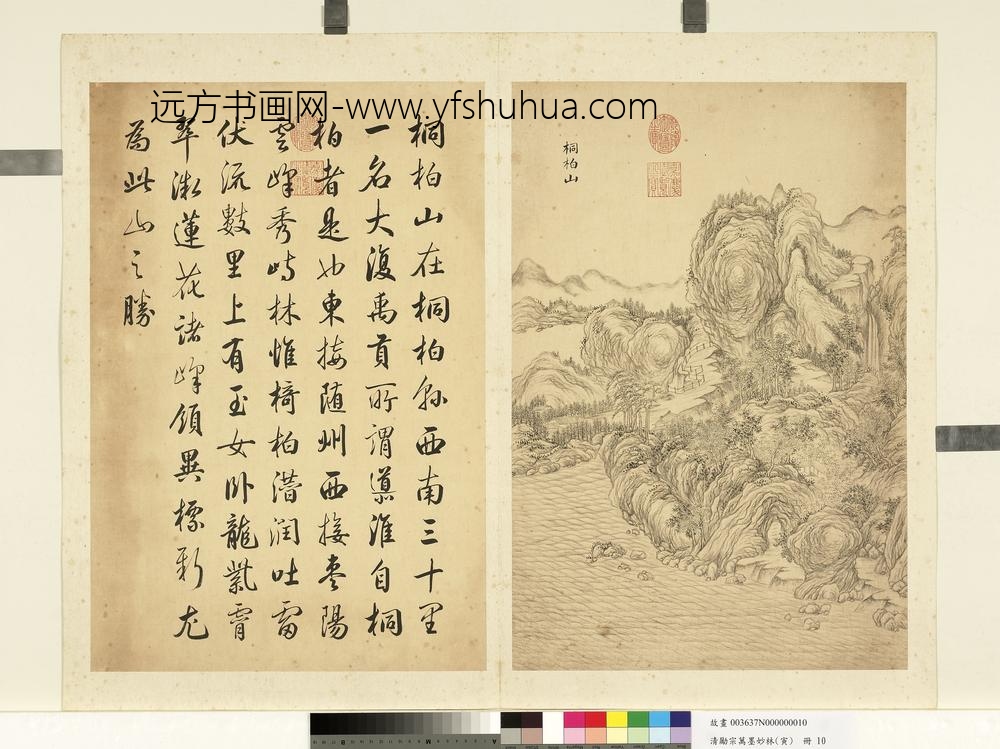 远方书画网-www.yfshuhua.com
桐柏山
桐柏山在桐柏縣西南三十里
一名大復禹貢所謂導淮自桐
柏者是也東接随州西接棗陽
雲峰秀峙林惟椅柏潛潤吐雷
伏流數里上有玉女卧龍紫霄
翠微蓮花諸峰領異標新尤
為此山之勝
故畫 003637N000000010
清勵宗萬墨妙林(寅) 冊 10